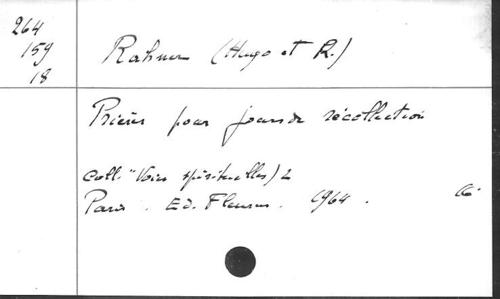 264
159
18
Rahner (Hugo et R.)
Prières pour jours de récollection
Coll. "Voies spirituelles) 2
Paris. Ed. Fleurus. 1964.